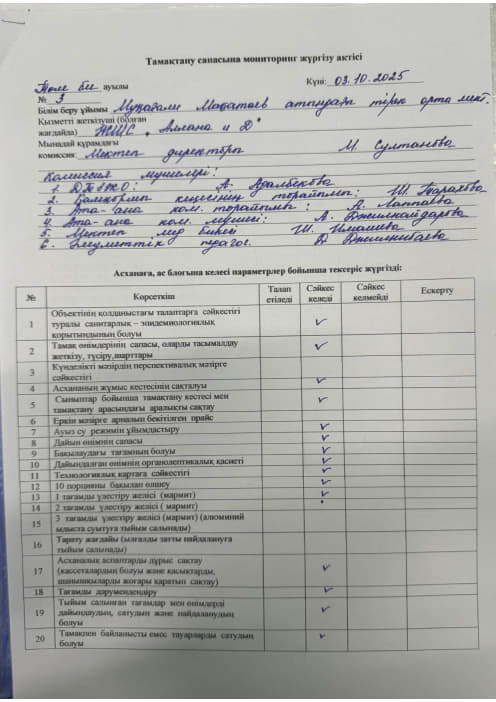 Тамақтану сапасына мониторинг жүргізу актісі
Төле би ауылы Күні: 03.10.2025
№ 3
Білім беру ұйымы Мұқағали Мақатаев атындағы тірек орта мект.
Қызметті жеткізуші (болған
жағдайда) ЖШС "Алана и Д"
Мынадай құрамдағы
комиссия: Мектеп директоры М. Султанова
Комиссия мүшелері:
1. ДТІЖО: А. Адалбекова
2. Қамқорлық кеңесінің төрайымы: Ш.
3. Ата-ана ком. төрайымы: А. Лаппаева
4. Ата-ана ком. мүшесі: А. Джилкайдарова
5. Мектеп мед бикесі Ш. Имашева
6. Әлеуметтік педагог. Д Джилкибаева
Асханаға, ас блогына келесі параметрлер бойынша тексеріс жүргізді:
№ Көрсеткіш Талап етіледі Сәйкес келеді Сәйкес келмейді Ескерту
1 Объектінің қолданыстағы талаптарға сәйкестігі
туралы санитарлық – эпидемиологиялық
қорытындының болуы ✓
2 Тамақ өнімдерінің сапасы, оларды тасымалдау
жеткізу, түсіру,шарттары ✓
3 Күнделікті мәзірдің перспективалық мәзірге
сәйкестігі
4 Асхананың жұмыс кестесінің сақталуы ✓
5 Сыныптар бойынша тамақтану кестесі мен
тамақтану арасындағы аралықты сақтау ✓
6 Еркін мәзірге арналып бекітілген прайс
7 Ауыз су режимін ұйымдастыру ✓
8 Дайын өнімнің сапасы ✓
9 Бақылаудағы тағамның болуы ✓
10 Дайындалған өнімнің органолептикалық қасиеті ✓
11 Технологиялық картаға сәйкестігі ✓
12 10 порцияны бақылап өлшеу ✓
13 1 тағамды үлестіру желісі (мармит) ✓
14 2 тағамды үлестіру желісі ( мармит)
15 3 тағамды үлестіру желісі (мармит) (алюминий
ыдыста суытуға тыйым салынады)
16 Тарату жағдайы (ылғалды затты пайдалануға
тыйым салынады)
17 Асханалық аспаптарды дұрыс сақтау
(кассеталардың болуы және қасықтарды,
шанышқыларды жоғары қаратып сақтау) ✓
18 Тағамды дәрумендендіру ✓
19 Тыйым салынған тағамдар мен өнімдерді
дайындаудың, сатудың және пайдаланудың
болуы ✓
20 Тамақпен байланысты емес тауарларды сатудың
болуы ✓